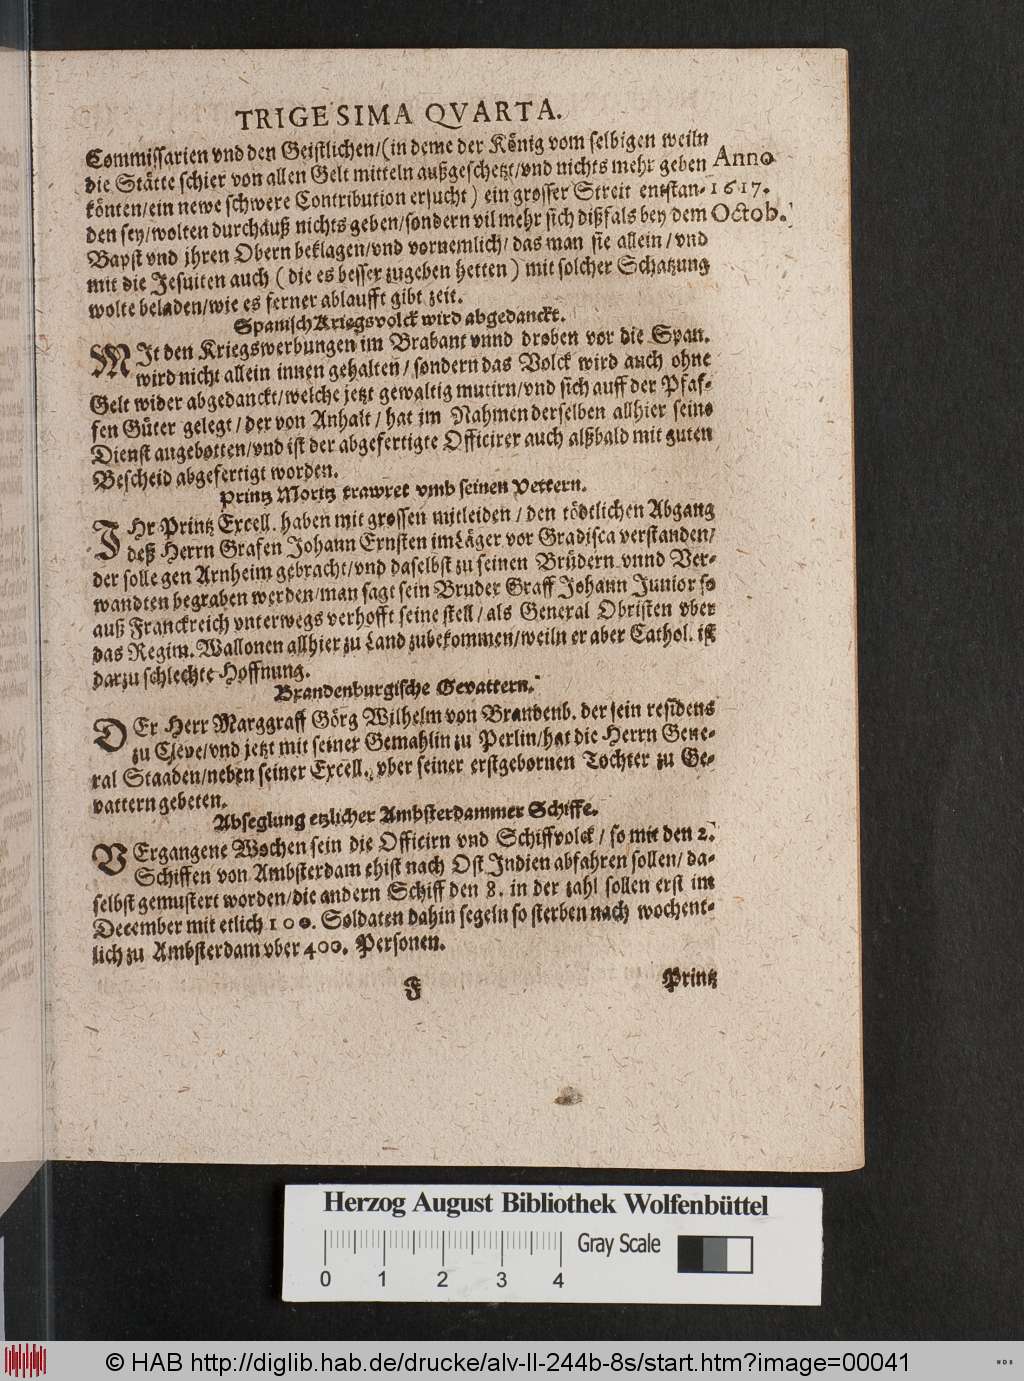 TRIGESIMA QVARTA.
Commissarien vnd den Geistlichen/(in deme der König vom selbigen weiln
die Stätte schier von allen Gelt mitteln außgeschetzt/vnd nichts mehr geben Anno
könten/ein newe schwere Contribution ersucht) ein grosser Streit entstan- 1617.
den sey/wolten durchauß nichts geben/sondern vil mehr sich dißfals bey dem Octob.
Bapst vnd jhren Obern beklagen/vnd vornemlich/das man sie allein/vnd
mit die Jesuiten auch (die es besser zugeben hetten) mit solcher Schatzung
wolte beladen/wie es ferner ablaufft gibt zeit.
Spanisch Kriegsvolck wird abgedanckt.
MIt den Kriegswerbungen im Brabant vnnd droben vor die Span.
wird nicht allein innen gehalten/sondern das Volck wird auch ohne
Gelt wider abgedanckt/welche jetzt gewaltig mutirn/vnd sich auff der Pfaf-
fen Güter gelegt/der von Anhalt/hat jm Nahmen derselben allhier seine
Dienst angebotten/vnd ist der abgefertigte Officirer auch alßbald mit guten
Bescheid abgefertigt worden.
Printz Moritz trawret vmb seinen Vettern.
IHr Printz Excell. haben mit grossen mitleiden/den tödtlichen Abgang
deß Herrn Grafen Johann Ernsten im Läger vor Gradisca verstanden/
der solle gen Arnheim gebracht/vnd daselbst zu seinen Brüdern vnnd Ver-
wandten begraben werden/man sagt sein Bruder Graff Johann Junior so
auß Franckreich vnterwegs verhofft seine stell/als General Obristen vber
das Regim. Wallonen allhier zu Land zubekommen/weiln er aber Cathol. ist
darzu schlechte Hoffnung.
Brandenburgische Gevattern.
DEr Herr Marggraff Görg Wilhelm von Brandenb. der sein residens
zu Cleve/vnd jetzt mit seiner Gemahlin zu Perlin/hat die Herrn Gene-
ral Staaden/neben seiner Excell. vber seiner erstgebornen Tochter zu Ge-
vattern gebeten.
Abseglung etzlicher Ambsterdammer Schiffe.
VErgangene Wochen sein die Officirn vnd Schiffvolck/so mit den 2.
Schiffen von Ambsterdam ehist nach Ost Indien abfahren sollen/da-
selbst gemustert worden/die andern Schiff den 8. in der zahl sollen erst im
December mit etlich 100. Soldaten dahin segeln so sterben nach wochent-
lich zu Ambsterdam vber 400. Personen.
F Printz
Herzog August Bibliothek Wolfenbüttel
Gray Scale
0 1 2 3 4
© HAB http://diglib.hab.de/drucke/alv-ll-244b-8s/start.htm?image=00041